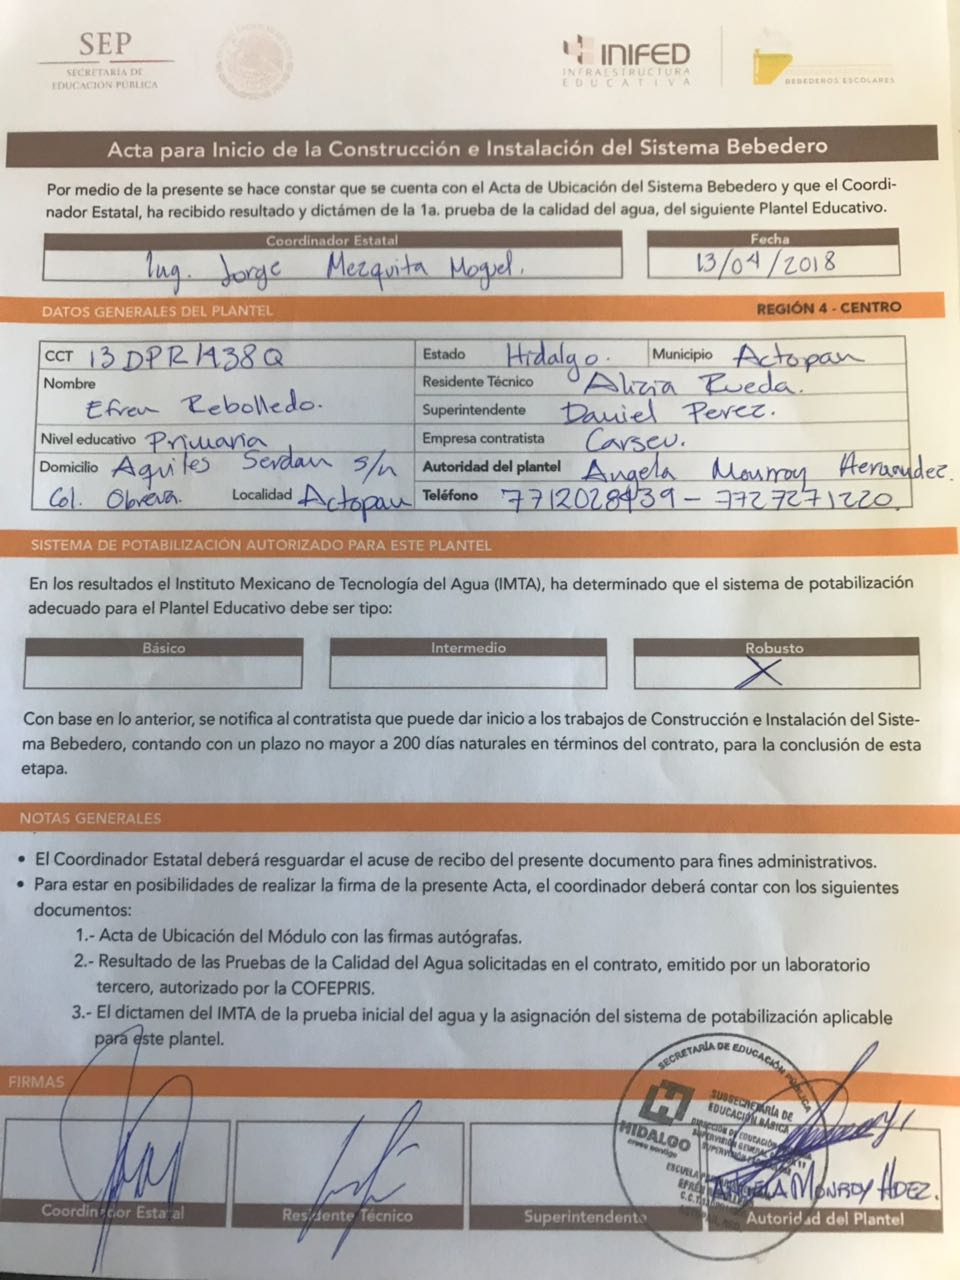 SEP
SECRETARÍA DE
EDUCACIÓN PÚBLICA
INIFED
INFRAESTRUCTURA
EDUCATIVA
BEBEDEROS ESCOLARES
Acta para Inicio de la Construcción e Instalación del Sistema Bebedero
Por medio de la presente se hace constar que se cuenta con el Acta de Ubicación del Sistema Bebedero y que el Coordi-
nador Estatal, ha recibido resultado y dictámen de la 1a. prueba de la calidad del agua, del siguiente Plantel Educativo.
Coordinador Estatal
Ing. Jorge Mezquita Moguel.
Fecha
13/04/2018
DATOS GENERALES DEL PLANTEL
REGIÓN 4 - CENTRO
CCT 13DPR1438Q
Estado Hidalgo. Municipio Actopan
Nombre
Efren Rebolledo.
Residente Técnico Alizia Rueda.
Superintendente Daniel Perez.
Nivel educativo Primaria
Empresa contratista Carsev.
Domicilio Aquiles Serdan s/n
Autoridad del plantel Angela Monrroy Hernandez.
Col. Obrera. Localidad Actopan
Teléfono 7712028439 - 7727271220.
SISTEMA DE POTABILIZACIÓN AUTORIZADO PARA ESTE PLANTEL
En los resultados el Instituto Mexicano de Tecnología del Agua (IMTA), ha determinado que el sistema de potabilización
adecuado para el Plantel Educativo debe ser tipo:
Básico Intermedio Robusto
X
Con base en lo anterior, se notifica al contratista que puede dar inicio a los trabajos de Construcción e Instalación del Siste-
ma Bebedero, contando con un plazo no mayor a 200 días naturales en términos del contrato, para la conclusión de esta
etapa.
NOTAS GENERALES
• El Coordinador Estatal deberá resguardar el acuse de recibo del presente documento para fines administrativos.
• Para estar en posibilidades de realizar la firma de la presente Acta, el coordinador deberá contar con los siguientes
documentos:
1.- Acta de Ubicación del Módulo con las firmas autógrafas.
2.- Resultado de las Pruebas de la Calidad del Agua solicitadas en el contrato, emitido por un laboratorio
tercero, autorizado por la COFEPRIS.
3.- El dictamen del IMTA de la prueba inicial del agua y la asignación del sistema de potabilización aplicable
para este plantel.
FIRMAS
SECRETARÍA DE EDUCACIÓN PÚBLICA
SUBSECRETARÍA DE
EDUCACIÓN BÁSICA
HIDALGO
ANGELA MONROY HDEZ.
Coordinador Estatal
Residente Técnico
Superintendente
Autoridad del Plantel